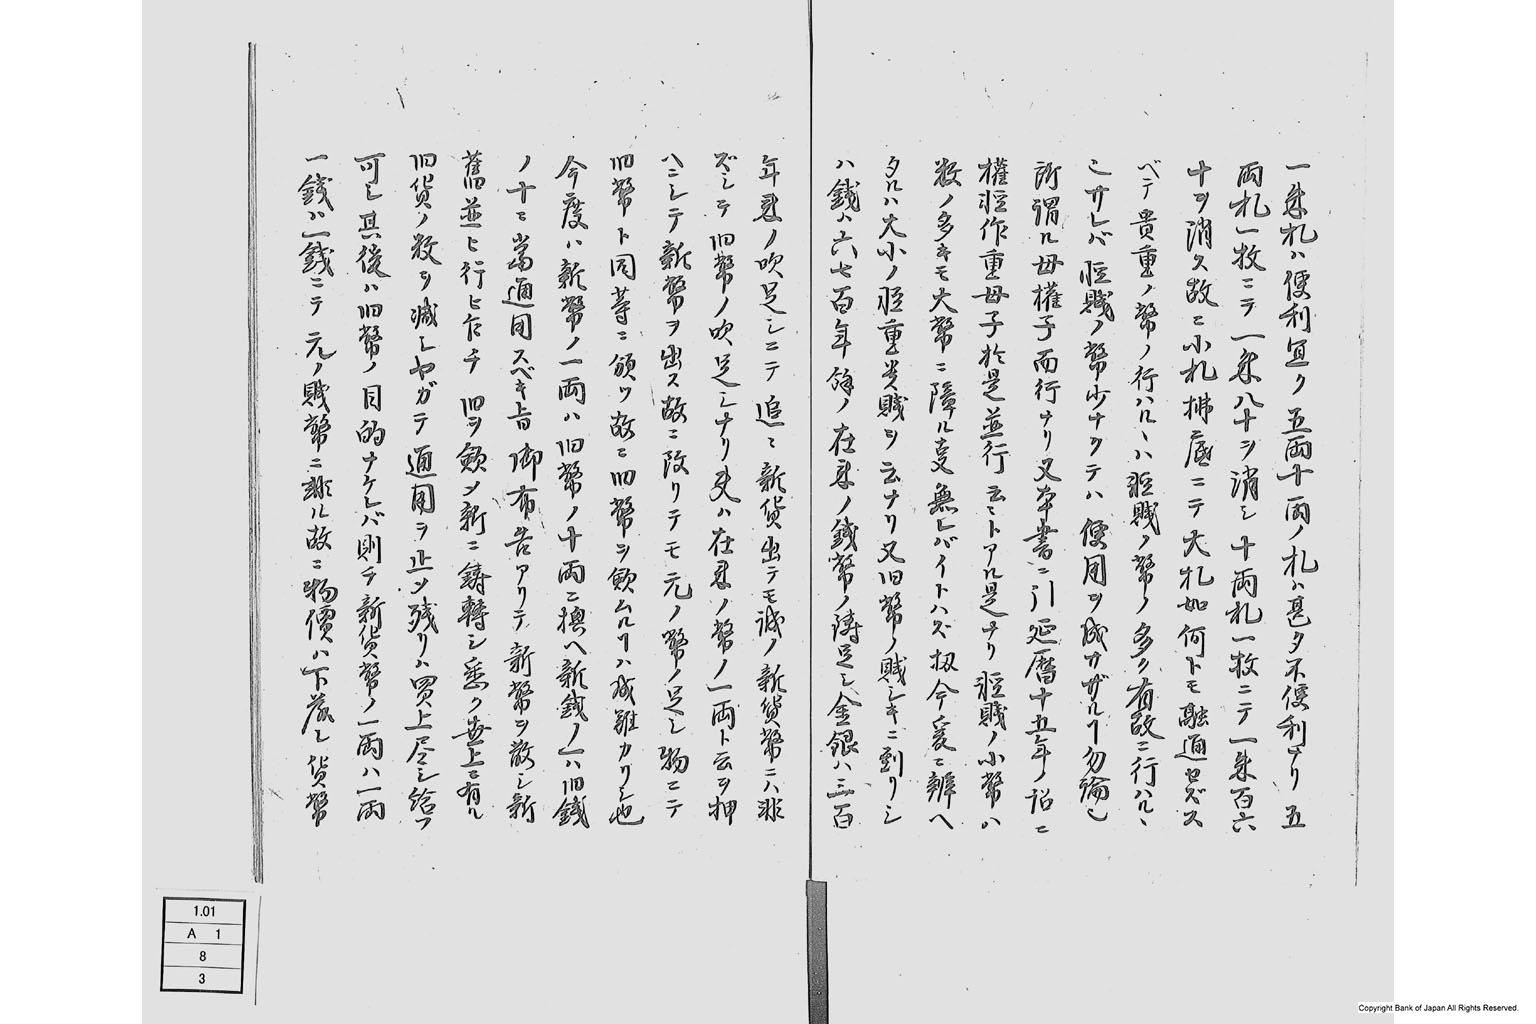 一朱札ハ便利宜ク五両十両ノ札ハ甚タ不便利ナリ五
両札一枚ニテ一朱八十ヲ消シ十両札一枚ニテ一朱百六
十ヲ消ス故ニ小札拂底ニテ大札如何トモ融通セズス
ベテ貴重ノ幣ノ行ハルヽハ軽賎ノ幣ノ多ク有故ニ行ハルヽ
ニサレバ軽賎ノ幣少ナクテハ便用ヲ成サザルヿ勿論也
所謂ル母権子而行ナリ又本書ニ引延暦十五年ノ詔ニ
権軽作重母子於是並行云々トアル是ナリ軽賎ノ小幣ハ
数ノ多キモ大幣ニ障ル㕝無レバイトハズ扨今爰ニ辨ヘ
タルハ大小ノ軽重貴賎ヲ云ナリ又旧幣ノ賎シキニ到リシ
ハ銭ハ六七百年餘ノ在来ノ銭幣ノ鋳足シ金銀ハ三百
年来ノ吹足シニテ追々新貨出テモ誠ノ新貨幣ニハ非
ズシテ旧幣ノ吹足シナリ夫ハ在来ノ幣ノ一両ト云ヲ押
ハニシテ新幣ヲ出ス故ニ改リテモ元ノ幣ノ足シ物ニテ
旧幣ト同等ニ領ツ故ニ旧幣ヲ斂ムルヿハ成難カリシ也
今度ハ新幣ノ一両ハ旧幣ノ十両ニ換ヘ新銭ノ一ハ旧銭
ノ十ニ當通用スベキ旨御布告アリテ新幣ヲ散シ新
舊並ヒ行ヒ乍チ旧ヲ斂メ新ニ鋳轉シ悉ク世上ニ有ル
旧貨ノ数ヲ減シヤガテ通用ヲ止メ残リハ買上尽シ給フ
可シ其後ハ旧幣ノ目的ナケレバ則チ新貨幣ノ一両ハ一両
一銭ハ一銭ニテ元ノ賎幣ニ非ル故ニ物價ハ下落シ貨幣
1.01
A 1
8
3
Copyright Bank of Japan All Rights Reserved.